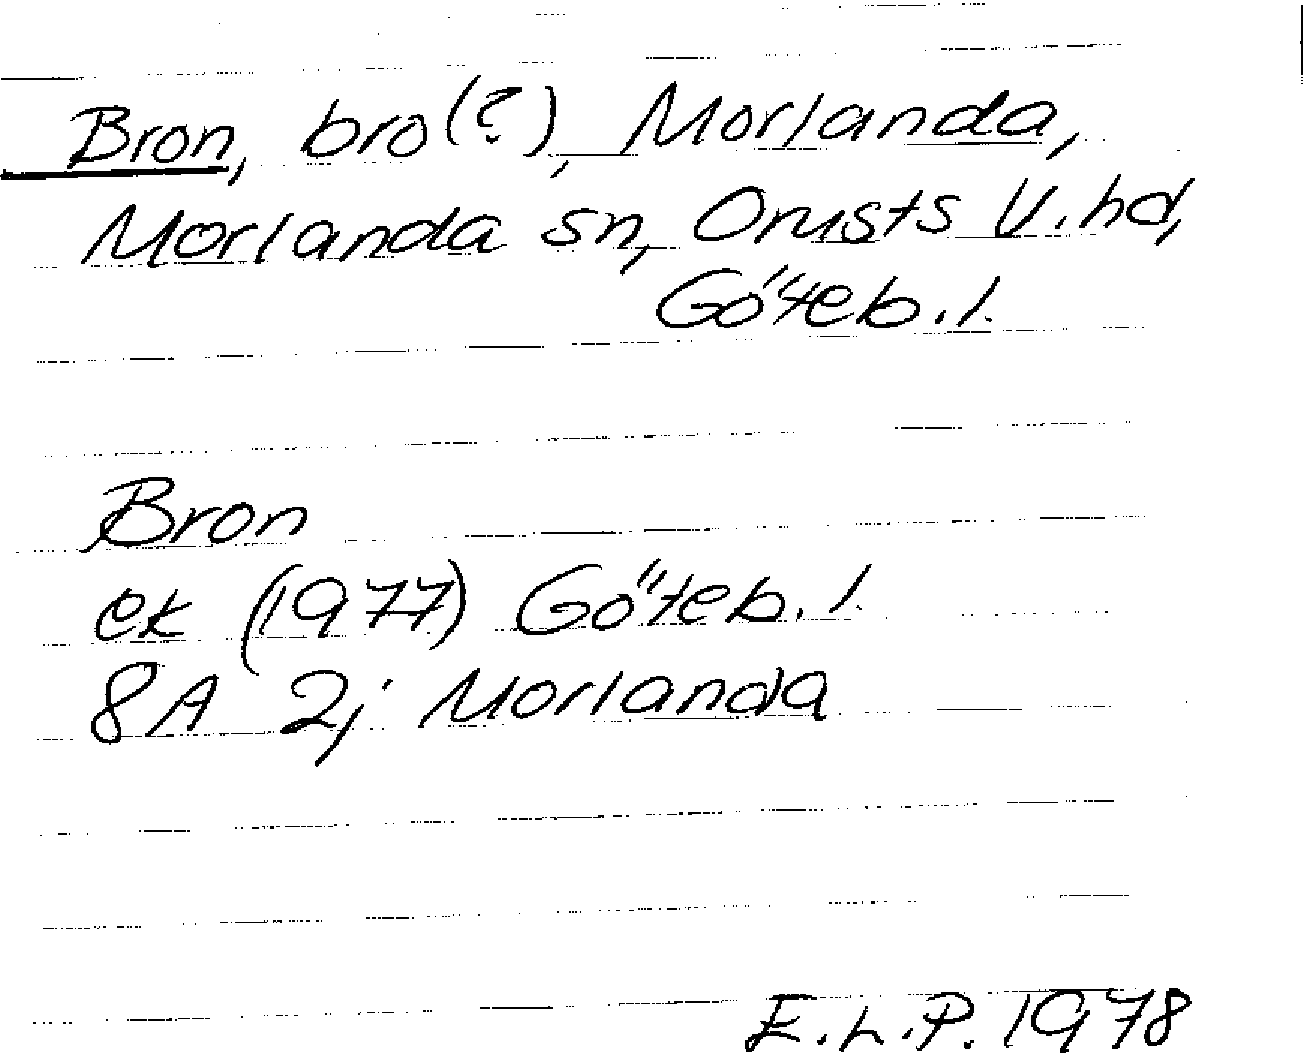 Bron, bro(?), Morlanda,
Morlanda sn, Orusts V. hd,
Göteb. l.
Bron
ek (1977) Göteb. l.
8A 2j Morlanda
E.L.P. 1978